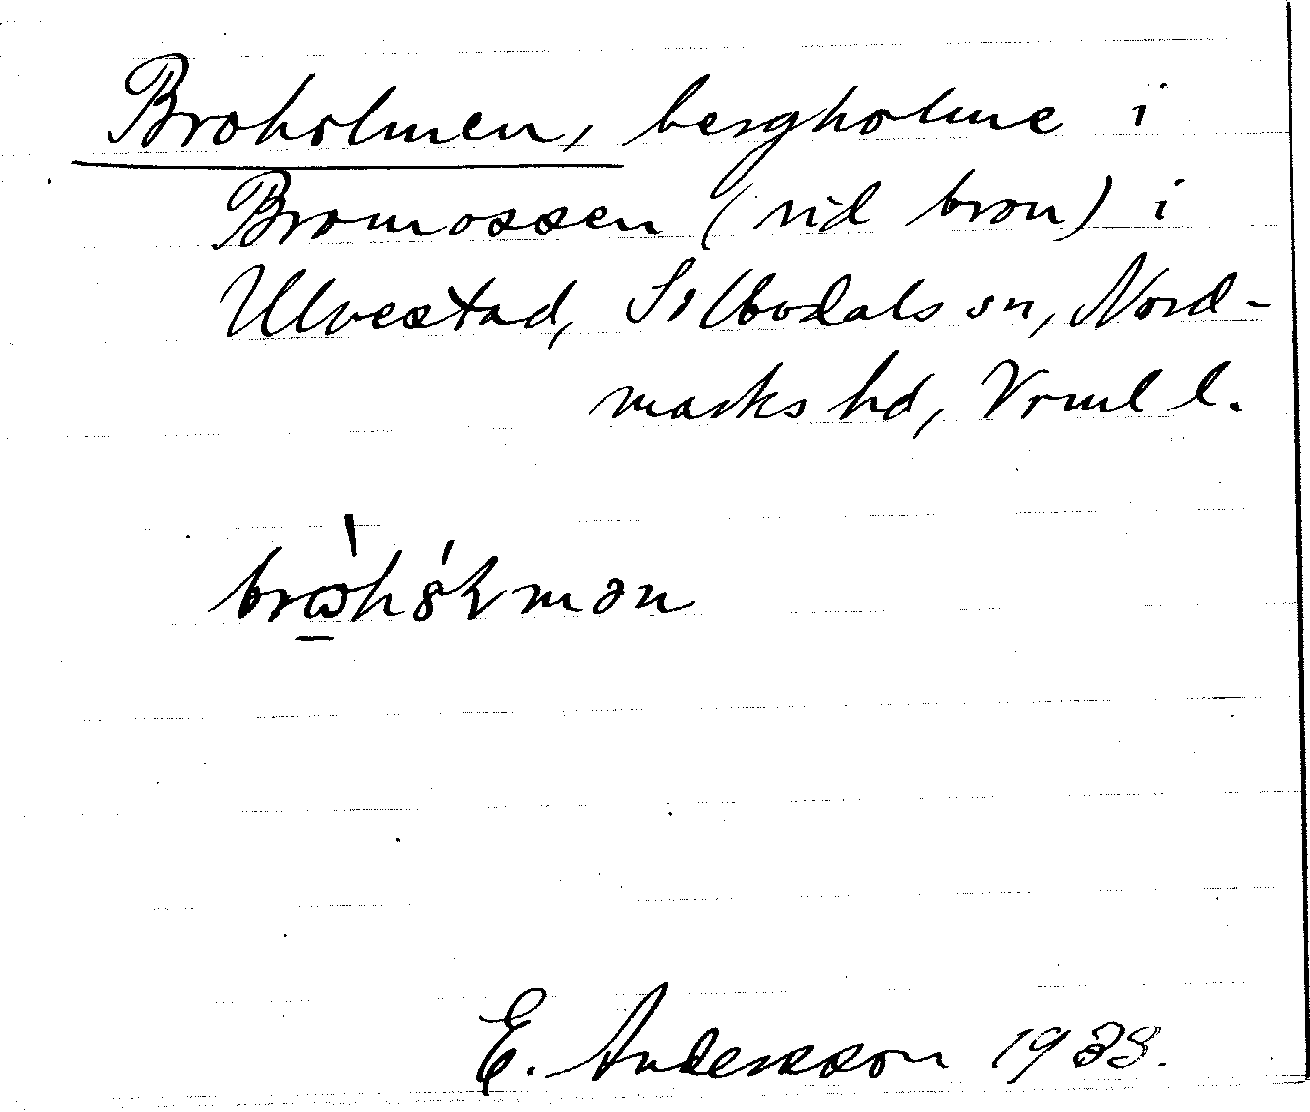 Broholmen, bergholme i
Bromossen (vid bron) i
Ulvestad, Silbodals sn, Nord-
marks hd, Vrml l.
E. Andersson 1933.